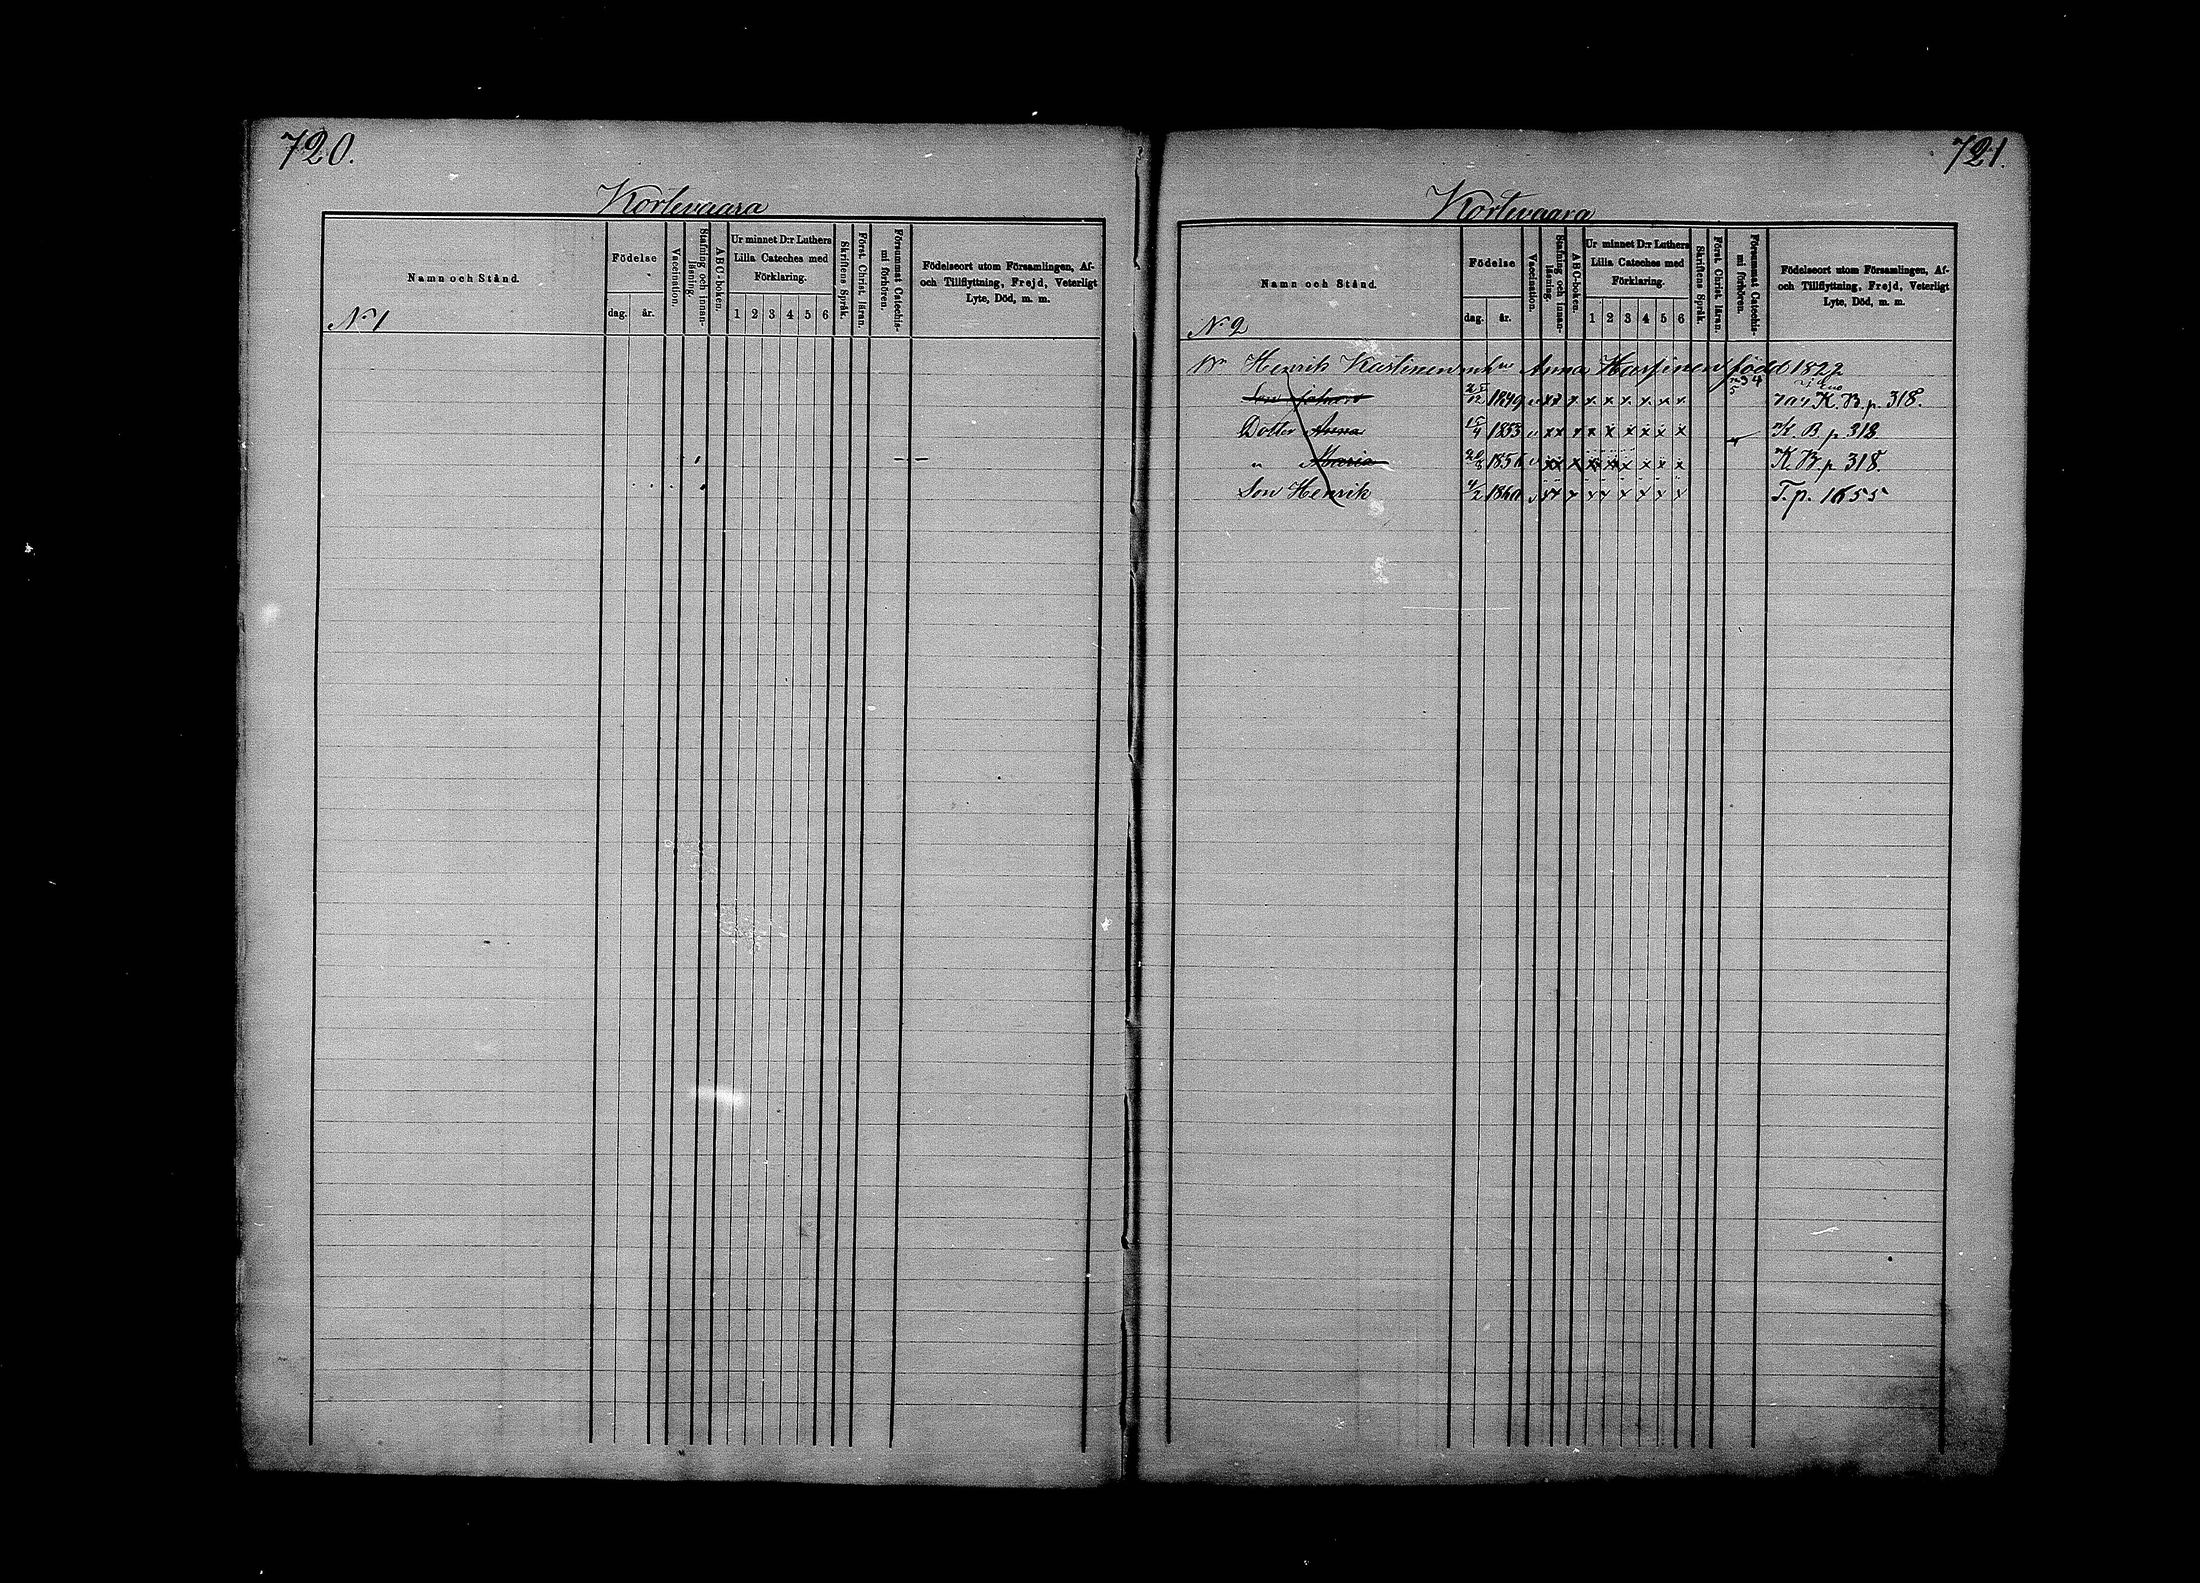 720.
Kortevaara
Namn och Stånd.
Födelse
dag. år.
Vaccination.
Stafning och innan-
läsning.
ABC-boken.
Ur minnet D:r Luthers
Lilla Cateches med
Förklaring.
1 2 3 4 5 6
Skriftens Språk.
Först. Christ. läran.
Försummat Catechis-
mi förhören.
Födelseort utom Församlingen, Af-
och Tillflyttning, Frejd, Veterligt
Lyte, Död, m. m.
N:o 1
721.
Kortevaara
Namn och Stånd.
Födelse
dag. år.
Vaccination.
Stafning och innan-
läsning.
ABC-boken.
Ur minnet D:r Luthers
Lilla Cateches med
Förklaring.
1 2 3 4 5 6
Skriftens Språk.
Först. Christ. läran.
Försummat Catechis-
mi förhören.
Födelseort utom Församlingen, Af-
och Tillflyttning, Frejd, Veterligt
Lyte, Död, m. m.
N:o 2
Henrik Anna född 1822
Son 1849 x x x x x x x K. B. p. 318.
Dotter Anna 15/4 1853 x x x x x x x x x K. B. p 318
" Maria x x x x x x x x x K. B. p 318.
Son Henrik x x x x x x x x x T. p. 1655